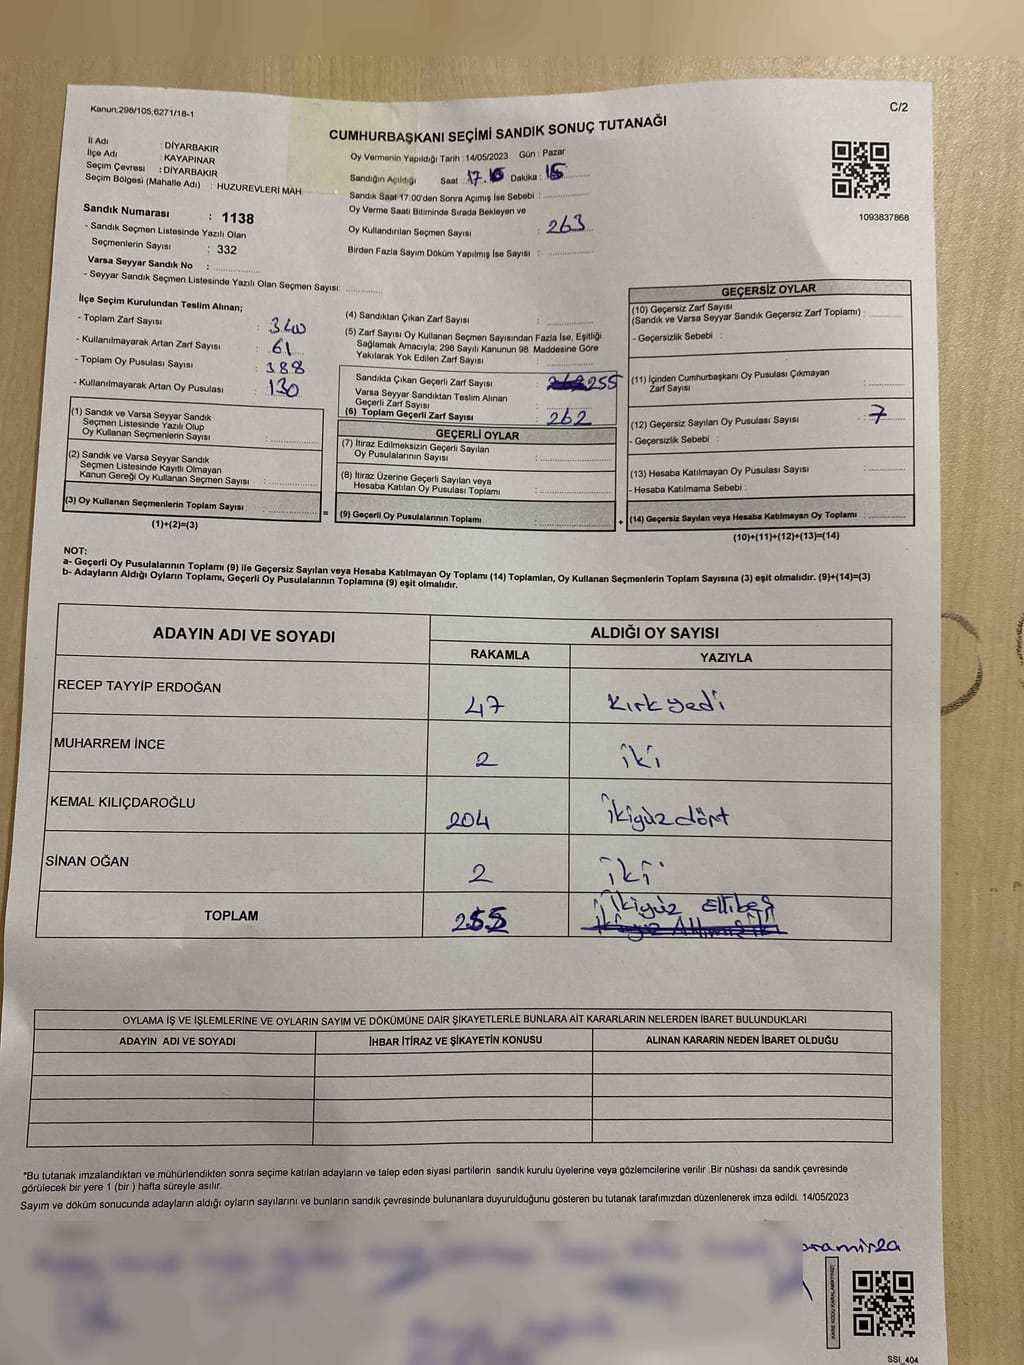 Kanun;298/105,6271/18-1
C/2
CUMHURBAŞKANI SEÇİMİ SANDIK SONUÇ TUTANAĞI
İl Adı : DİYARBAKIR
İlçe Adı : KAYAPINAR
Seçim Çevresi : DİYARBAKIR
Seçim Bölgesi (Mahalle Adı) : HUZUREVLERİ MAH
Oy Vermenin Yapıldığı Tarih : 14/05/2023 Gün : Pazar
Sandığın Açıldığı Saat : 17. Dakika :
Sandık Saat 17.00'den Sonra Açımış İse Sebebi :
Oy Verme Saati Bitiminde Sırada Bekleyen ve
Oy Kullandırılan Seçmen Sayısı : 263
Birden Fazla Sayım Döküm Yapılmış İse Sayısı :
1093837868
Sandık Numarası : 1138
- Sandık Seçmen Listesinde Yazılı Olan
Seçmenlerin Sayısı : 332
Varsa Seyyar Sandık No :
- Seyyar Sandık Seçmen Listesinde Yazılı Olan Seçmen Sayısı:
İlçe Seçim Kurulundan Teslim Alınan;
- Toplam Zarf Sayısı : 340
- Kullanılmayarak Artan Zarf Sayısı : 61
- Toplam Oy Pusulası Sayısı : 388
- Kullanılmayarak Artan Oy Pusulası : 130
(1) Sandık ve Varsa Seyyar Sandık
Seçmen Listesinde Yazılı Olup
Oy Kullanan Seçmenlerin Sayısı :
(2) Sandık ve Varsa Seyyar Sandık
Seçmen Listesinde Kayıtlı Olmayan
Kanun Gereği Oy Kullanan Seçmen Sayısı :
(3) Oy Kullanan Seçmenlerin Toplam Sayısı :
(1)+(2)=(3)
(4) Sandıktan Çıkan Zarf Sayısı :
(5) Zarf Sayısı Oy Kullanan Seçmen Sayısından Fazla İse, Eşitliği
Sağlamak Amacıyla; 298 Sayılı Kanunun 98. Maddesine Göre
Yakılarak Yok Edilen Zarf Sayısı :
Sandıkta Çıkan Geçerli Zarf Sayısı : 255
Varsa Seyyar Sandıktan Teslim Alınan
Geçerli Zarf Sayısı :
(6) Toplam Geçerli Zarf Sayısı : 262
=
GEÇERLİ OYLAR
(7) İtiraz Edilmeksizin Geçerli Sayılan
Oy Pusulalarının Sayısı :
(8) İtiraz Üzerine Geçerli Sayılan veya
Hesaba Katılan Oy Pusulası Toplamı :
(9) Geçerli Oy Pusulalarının Toplamı :
+
GEÇERSİZ OYLAR
(10) Geçersiz Zarf Sayısı
(Sandık ve Varsa Seyyar Sandık Geçersiz Zarf Toplamı) :
- Geçersizlik Sebebi :
(11) İçinden Cumhurbaşkanı Oy Pusulası Çıkmayan
Zarf Sayısı :
(12) Geçersiz Sayılan Oy Pusulası Sayısı : 7
- Geçersizlik Sebebi :
(13) Hesaba Katılmayan Oy Pusulası Sayısı :
- Hesaba Katılmama Sebebi :
(14) Geçersiz Sayılan veya Hesaba Katılmayan Oy Toplamı :
(10)+(11)+(12)+(13)=(14)
NOT:
a- Geçerli Oy Pusulalarının Toplamı (9) ile Geçersiz Sayılan veya Hesaba Katılmayan Oy Toplamı (14) Toplamları, Oy Kullanan Seçmenlerin Toplam Sayısına (3) eşit olmalıdır. (9)+(14)=(3)
b- Adayların Aldığı Oyların Toplamı, Geçerli Oy Pusulalarının Toplamına (9) eşit olmalıdır.
ADAYIN ADI VE SOYADI
ALDIĞI OY SAYISI
RAKAMLA YAZIYLA
RECEP TAYYİP ERDOĞAN 47 Kırk yedi
MUHARREM İNCE 2 iki
KEMAL KILIÇDAROĞLU 204 ikiyüz dört
SİNAN OĞAN 2 iki
TOPLAM 255 ikiyüz Ellibeş
ikiyüz Altmışiki
OYLAMA İŞ VE İŞLEMLERİNE VE OYLARIN SAYIM VE DÖKÜMÜNE DAİR ŞİKAYETLERLE BUNLARA AİT KARARLARIN NELERDEN İBARET BULUNDUKLARI
ADAYIN ADI VE SOYADI İHBAR İTİRAZ VE ŞİKAYETİN KONUSU ALINAN KARARIN NEDEN İBARET OLDUĞU
*Bu tutanak imzalandıktan ve mühürlendikten sonra seçime katılan adayların ve talep eden siyasi partilerin sandık kurulu üyelerine veya gözlemcilerine verilir .Bir nüshası da sandık çevresinde
görülecek bir yere 1 (bir ) hafta süreyle asılır.
Sayım ve döküm sonucunda adayların aldığı oyların sayılarını ve bunların sandık çevresinde bulunanlara duyurulduğunu gösteren bu tutanak tarafımızdan düzenlenerek imza edildi. 14/05/2023
KARE KODU KARALAMAYINIZ!
SSI_404